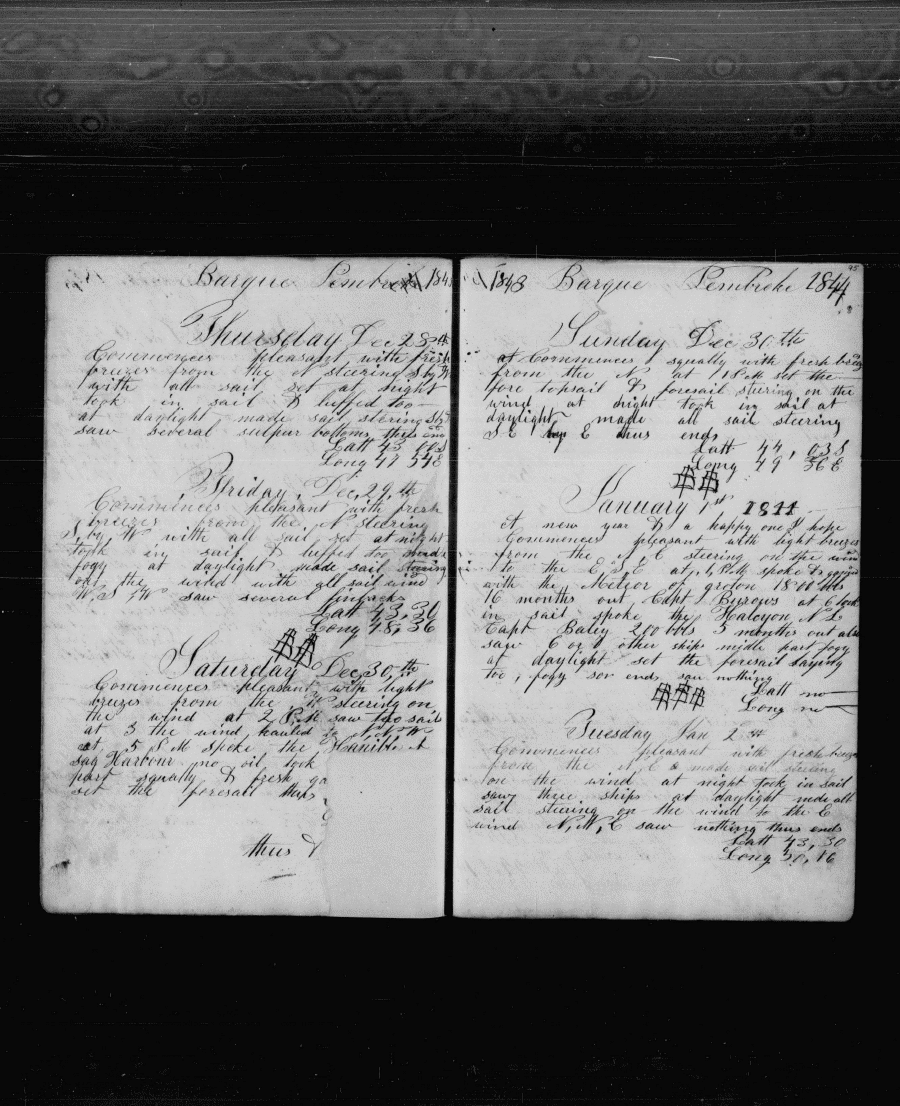 Barque Pembroke 184
Thursday Dec 28th
Commences pleasant with fresh
breezes from the N steering S by W
with all sail set at night
took in sail & luffed too
at daylight made sail steering S by
saw several sulpur bottoms thus
Latt 43
Long 47 54 E
Friday, Dec, 29, th
Commences pleasant with fresh
breezes from the N steering
S, by, W with all sail set at night
took in sail & luffed too
fogy at daylight made sail
the wind with all sail wind
W. S. W saw several finbacks
Latt 43, 30
Long 48, 36
Saturday Dec 30, th
Commences pleasant with light
breezes from the steering on
the wind at 2 P.M saw two sail
at 3 the wind hauled N. W
at 5 P M spoke the Hanible
sag Harbour no oil took
part squally & fresh ga
set the foresail thus
thus
1843 Barque Pembroke 1844
95
Sunday Dec 30 th
Commences squally with fresh
from the N at 1 P M set the
fore topsail & foresail steering on the
wind at night took in sail at
daylight made all sail steering
S E by E thus ends
Latt 44, 03 S
Long 49 36 E
January 1st 1844
A new year & a happy one I hope
Commences pleasant with light breezes
from the N E steering on the wind
to the E S E at 1, P.M spoke &
with the Meteor of groton 1800 bbls
16 months out Capt Burows at 6
in sail spoke the Halcyon N L
Capt Baley 200 bbls 3 months out also
saw 6 or other ships midle part fogy
at daylight set the foresail laying
too, fogy so ends, saw nothing
Latt no
Long no
Tuesday Jan 2
Commences pleasant with fresh breezes
from the N E made sail steering
on the wind at night took in sail
saw three ships at daylight made all
sail steering on the wind to the E
wind N, N, E saw nothing thus ends
Latt 43, 30
Long 50, 16